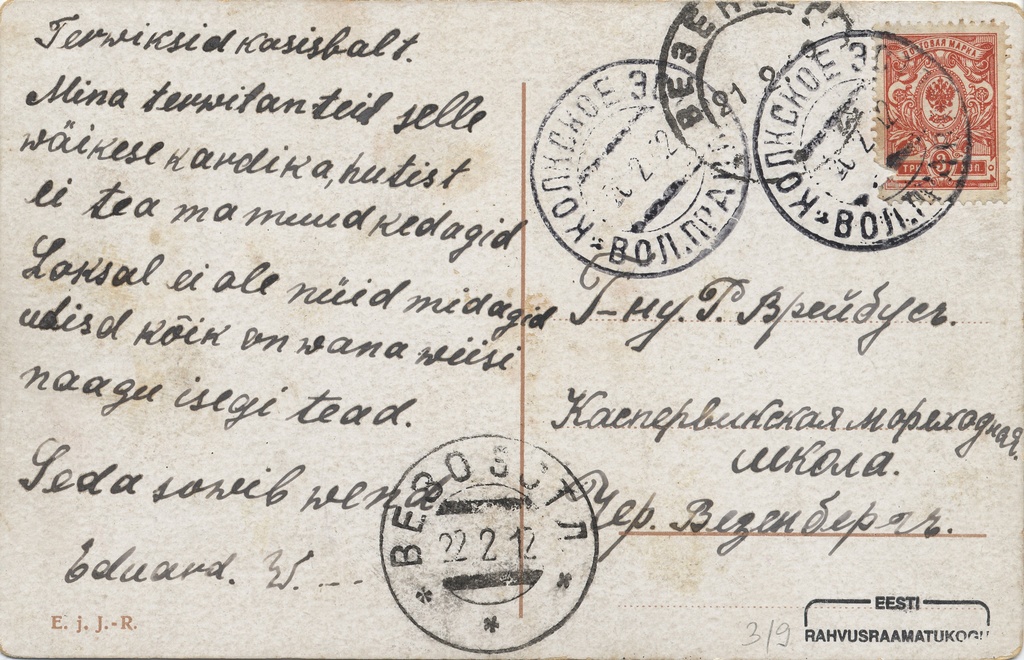 Terwiksid kasisbalt.
Mina terwitan teid selle
wäikese kardika, hutist
ei tea ma muud kedagid
Loksal ei ole nüid midagid
udisd kõik on wana wiisi
naagu isegi tead.
Seda sowib wend
Eduard. W.
E. j. J.-R.
КОЛКСКОЕ ВОЛ. ПРАВ
ВЕЗЕНБЕРГ
21 2
КОЛКСКОЕ ВОЛ. ПРАВ
ПОЧТОВАЯ МАРКА
3
ТРИ КОП
Г-ну. Г. Врейбусъ.
Каспервикская мореходная
школа.
Чер. Везенбергъ.
22 2 12
319
EESTI
RAHVUSRAAMATUKOGU